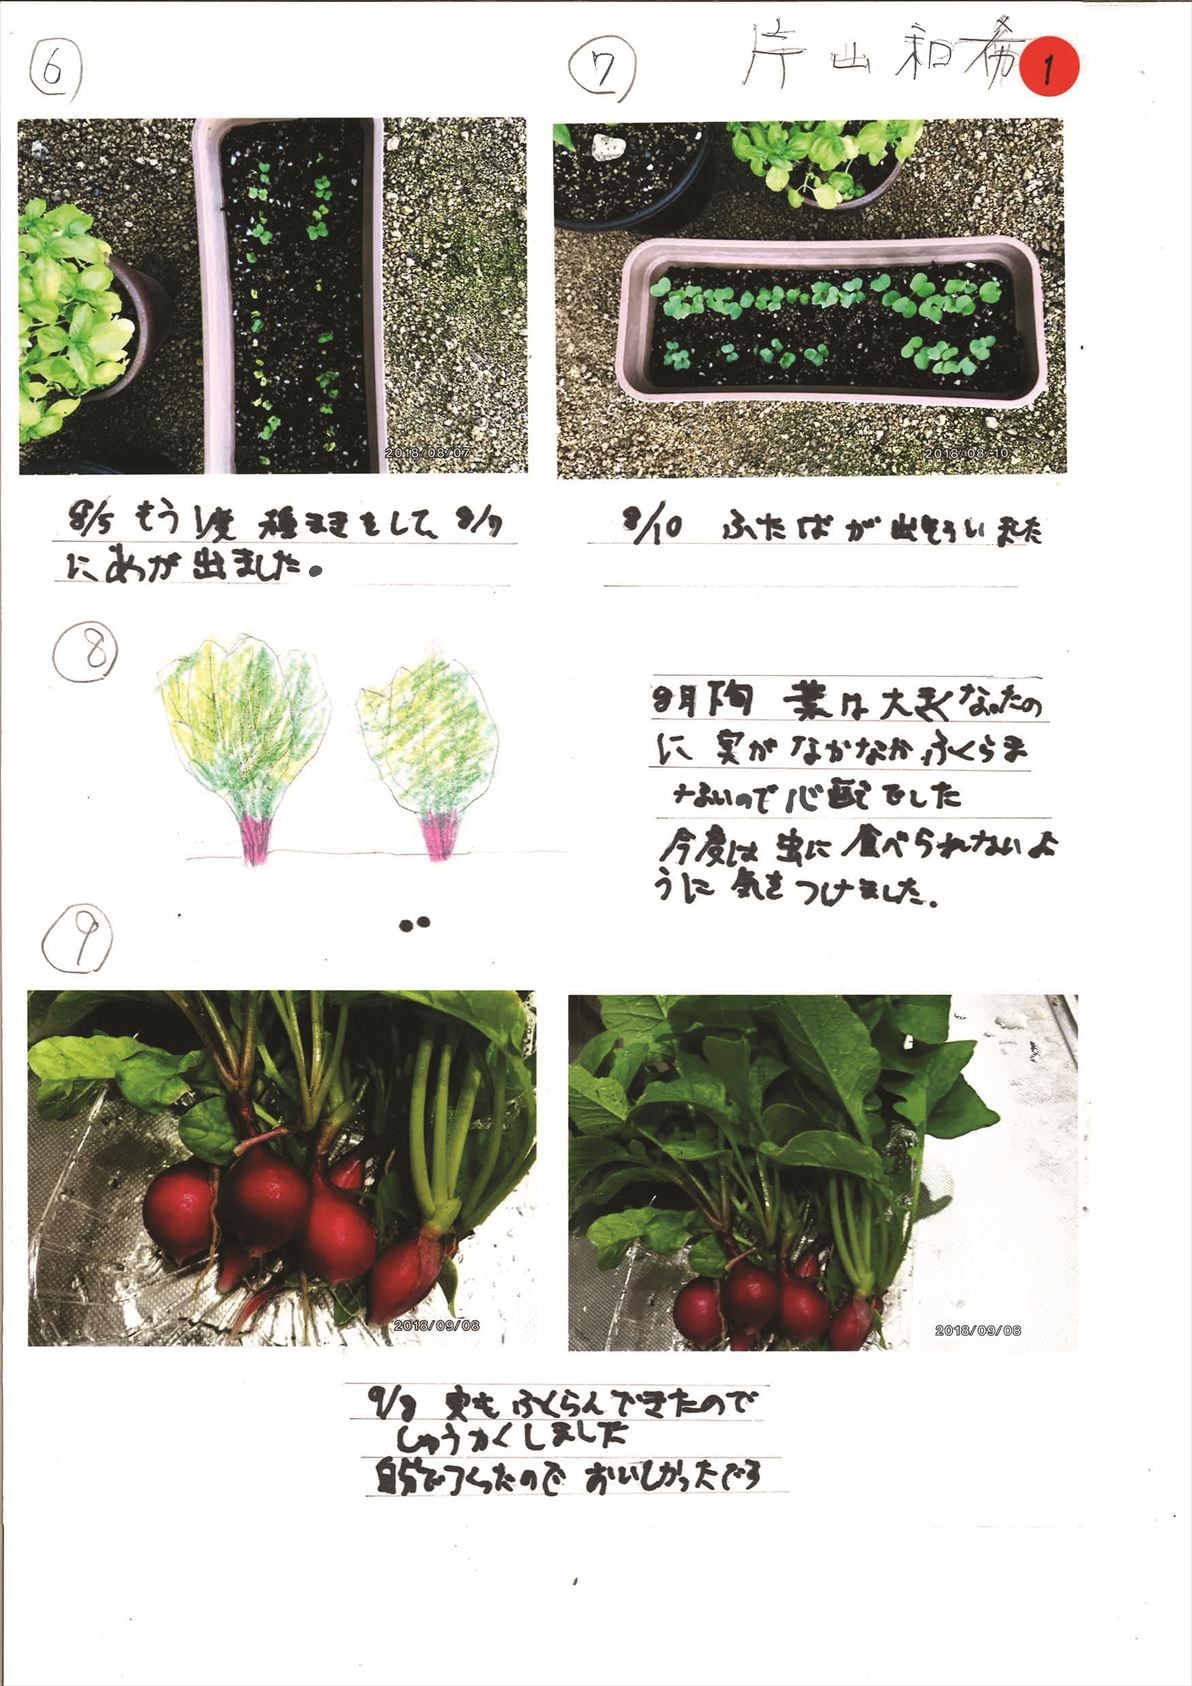 ⑥
⑦
片山和希
1
2018/08/07
2018/08/10
8/5 もう1度 種まきをして 8/7
にめが出ました。
8/10 ふたばが出そろいました
⑧
8月下旬 葉は大きくなったの
に 実がなかなかふくらま
ないので心配でした
今度は虫に食べられないよ
うに気をつけました。
⑨
2018/09/08
2018/09/08
9/8 実もふくらんできたので
しゅうかくしました
自分でつくったので おいしかったです